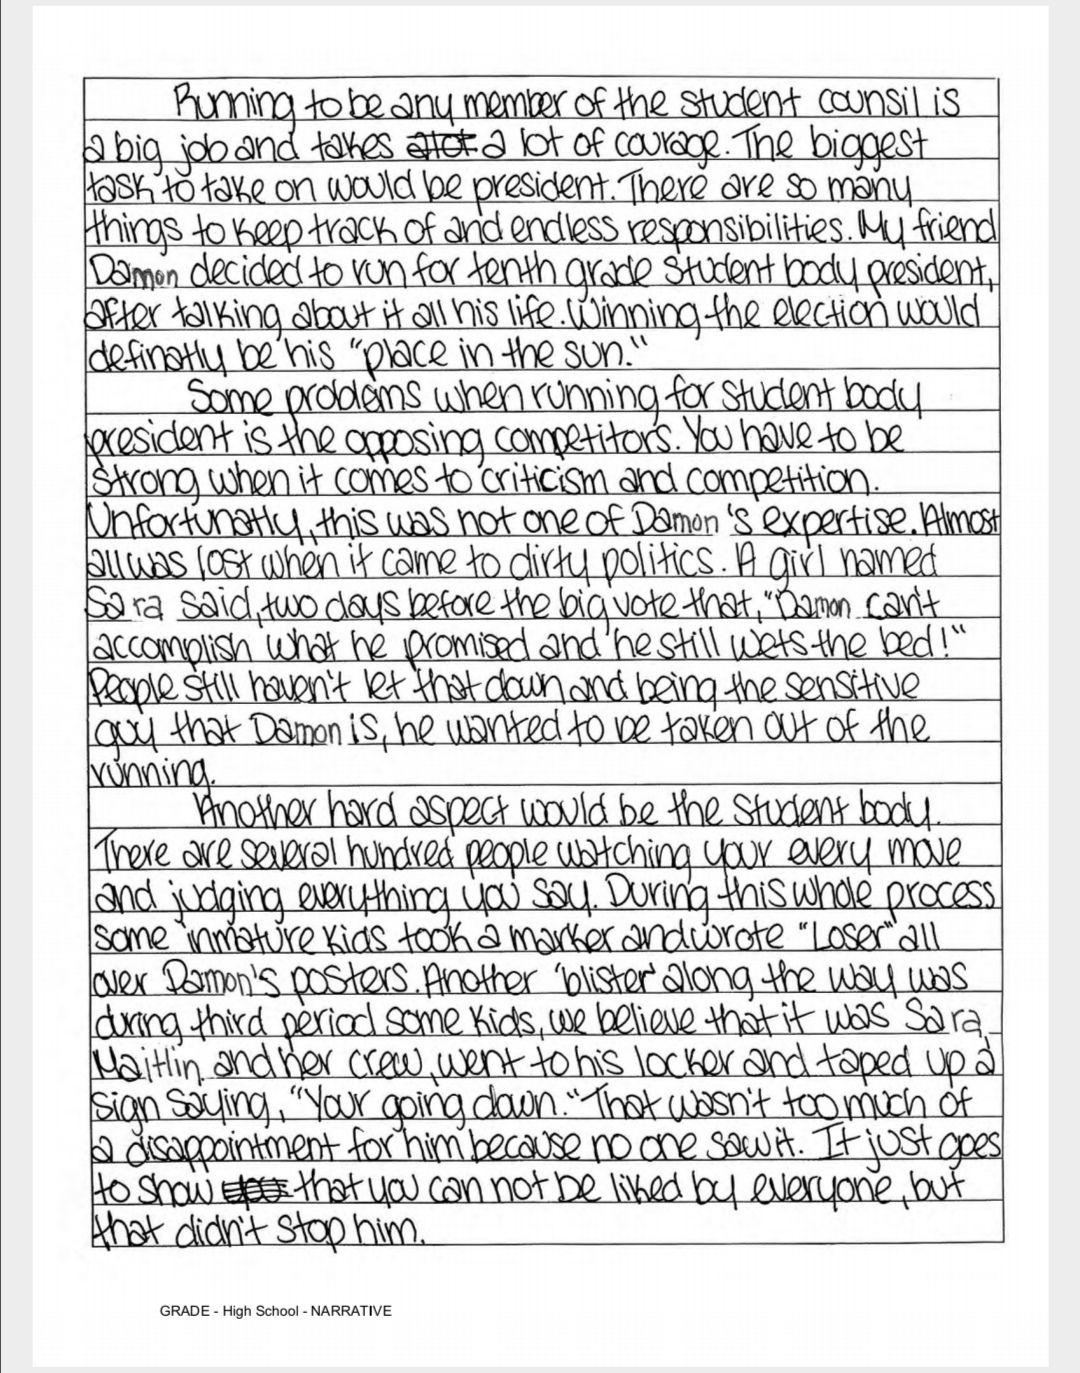 Running to be any member of the student counsil is
a big job and takes a lot of courage. The biggest
task to take on would be president. There are so many
things to keep track of and endless responsibilities. My friend
Damon decided to run for tenth grade student body president,
after talking about it all his life. Winning the election would
definatly be his "place in the sun."
Some problems when running for student body
president is the opposing competitors. You have to be
strong when it comes to criticism and competition.
Unfortunatly, this was not one of Damon's expertise. Almost
all was lost when it came to dirty politics. A girl named
Sara said, two days before the big vote that, "Damon can't
accomplish what he promised and he still wets the bed!"
People still haven't let that down and being the sensitive
guy that Damon is, he wanted to be taken out of the
running.
Another hard aspect would be the student body.
There are several hundred people watching your every move
and judging everything you say. During this whole process
some inmature kids took a marker and wrote "Loser" all
over Damon's posters. Another 'blister' along the way was
during third period some kids, we believe that it was Sara,
Haitlin and her crew, went to his locker and taped up a
sign saying, "Your going down." That wasn't too much of
a disappointment for him because no one saw it. It just goes
to show that you can not be liked by everyone, but
that didn't stop him.
GRADE - High School - NARRATIVE